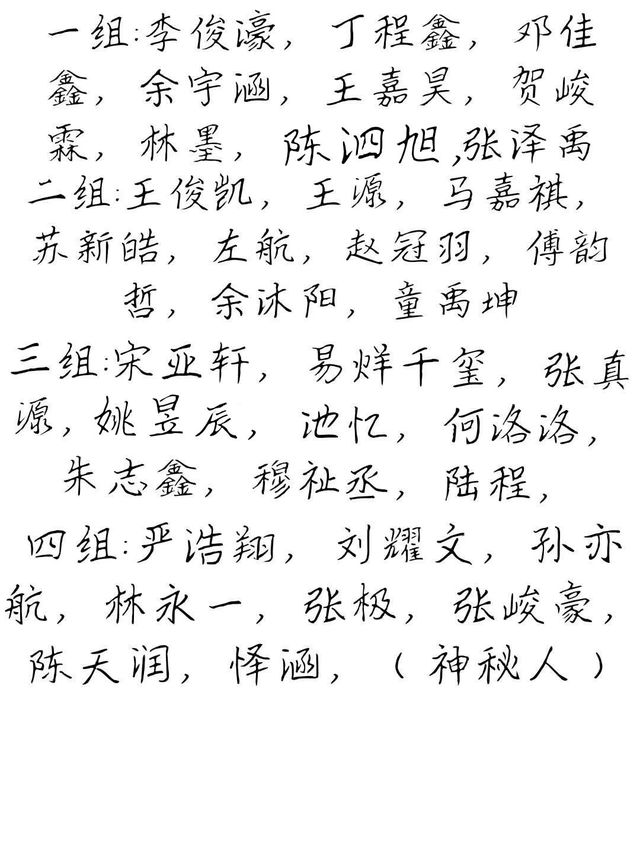 一组:李俊濠，丁程鑫，邓佳
鑫，余宇涵，王嘉昊，贺峻
霖，林墨，陈泗旭,张泽禹
二组:王俊凯，王源，马嘉祺，
苏新皓，左航，赵冠羽，傅韵
哲，余沐阳，童禹坤
三组:宋亚轩，易烊千玺，张真
源，姚昱辰，池忆，何洛洛，
朱志鑫，穆祉丞，陆程，
四组:严浩翔，刘耀文，孙亦
航，林永一，张极，张峻豪，
陈天润，怿涵，（神秘人）